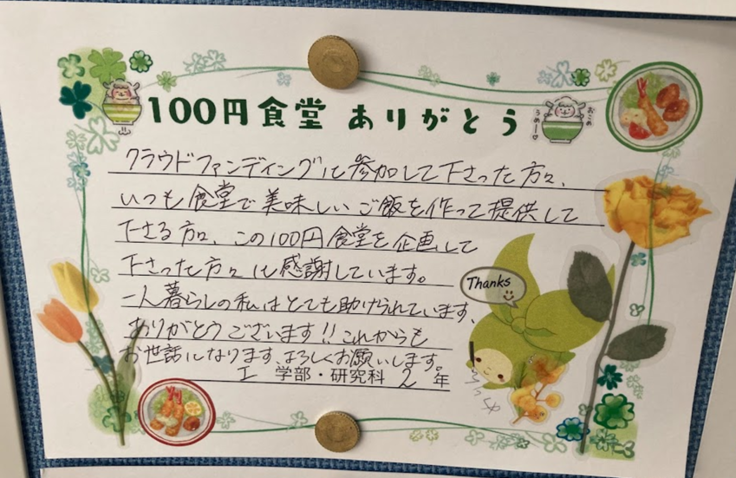 100円食堂 ありがとう
うめー
おこめ
クラウドファンディングに参加して下さった方々、
いつも食堂で美味しいご飯を作って提供して
下さる方々、この100円食堂を企画して
下さった方々に感謝しています。
一人暮らしの私はとても助けられています、
ありがとうございます!!これからも
お世話になります、よろしくお願いします。
工 学部・研究科 2 年
Thanks